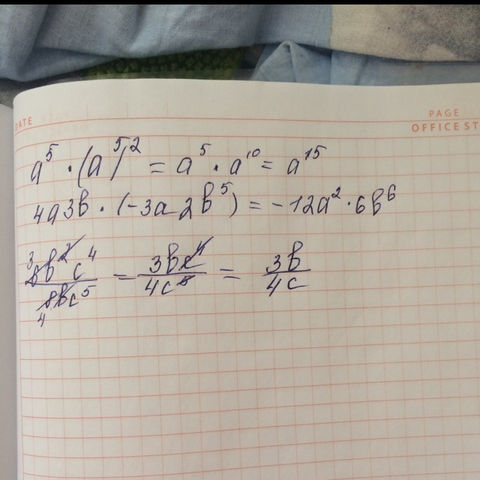 DATE
PAGE
OFFICE ST
a⁵ · (a⁵)² = a⁵ · a¹⁰ = a¹⁵
4a3b · (-3a 2b⁵) = -12a² · 6b⁶
b²c⁴ / 8bc⁵ = 3bc⁴ / 4c⁵ = 3b / 4c